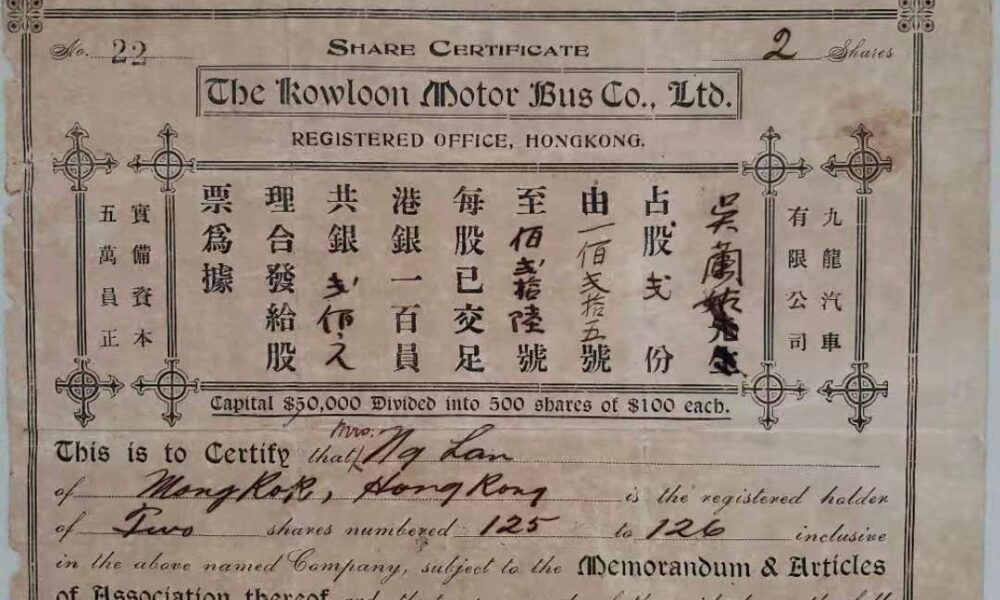 No. 22
SHARE CERTIFICATE
2 Shares
The Kowloon Motor Bus Co., Ltd.
REGISTERED OFFICE, HONGKONG.
九龍汽車
有限公司
吳蘭姑
占股弍份
由一佰弍拾五號
至佰弍拾陸號
每股已交足
港銀一百員
共銀弍佰
理合發給股
票爲據
實備資本
五萬員正
Capital $50,000 Divided into 500 shares of $100 each.
This is to Certify that Mrs. Ng Lan
of Mong Kok, Hong Kong is the registered holder
of Two shares numbered 125 to 126 inclusive
in the above named Company, subject to the Memorandum & Articles
of Association thereof and that